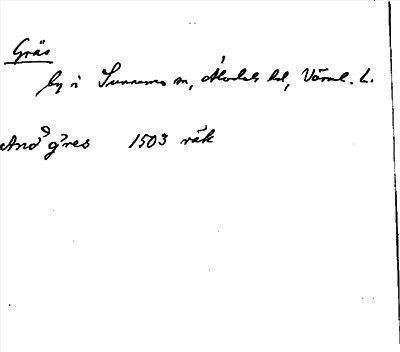 Gräs
by i Sunnemo sn, Älvdals hd, Värml. L.
And g'res 1503 räk